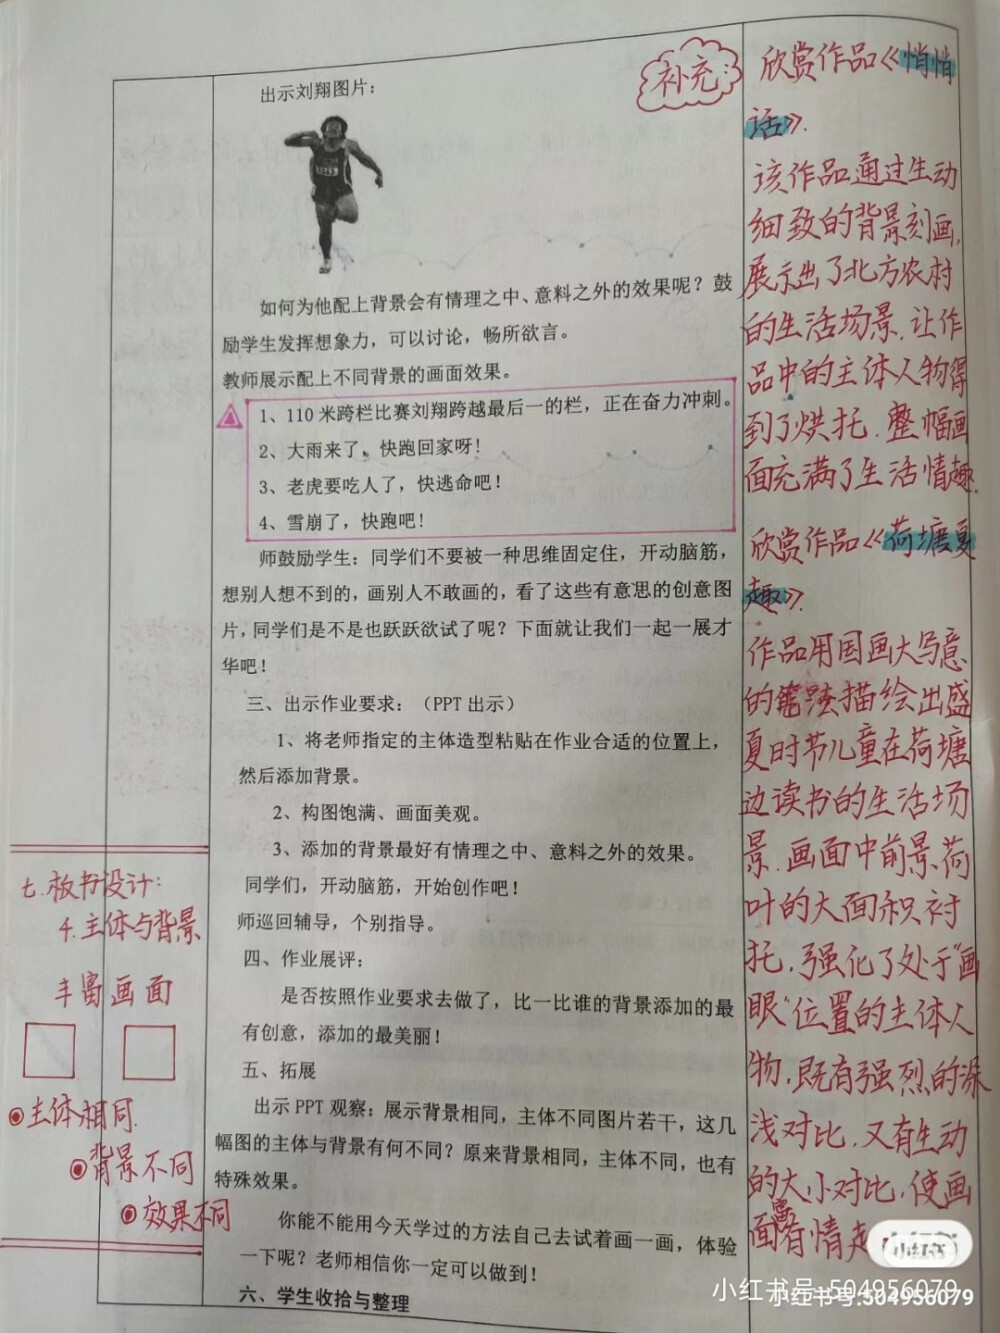 出示刘翔图片：
如何为他配上背景会有情理之中、意料之外的效果呢？鼓
励学生发挥想象力，可以讨论，畅所欲言。
教师展示配上不同背景的画面效果。
1、110 米跨栏比赛刘翔跨越最后一的栏，正在奋力冲刺。
2、大雨来了，快跑回家呀！
3、老虎要吃人了，快逃命吧！
4、雪崩了，快跑吧！
师鼓励学生：同学们不要被一种思维固定住，开动脑筋，
想别人想不到的，画别人不敢画的，看了这些有意思的创意图
片，同学们是不是也跃跃欲试了呢？下面就让我们一起一展才
华吧！
三、出示作业要求：（PPT 出示）
1、将老师指定的主体造型粘贴在作业合适的位置上，
然后添加背景。
2、构图饱满、画面美观。
3、添加的背景最好有情理之中、意料之外的效果。
同学们，开动脑筋，开始创作吧！
师巡回辅导，个别指导。
四、作业展评：
是否按照作业要求去做了，比一比谁的背景添加的最
有创意，添加的最美丽！
五、拓展
出示 PPT 观察：展示背景相同，主体不同图片若干，这几
幅图的主体与背景有何不同？原来背景相同，主体不同，也有
特殊效果。
你能不能用今天学过的方法自己去试着画一画，体验
一下呢？老师相信你一定可以做到！
六、学生收拾与整理
七.板书设计：
4.主体与背景
丰富画面
主体相同.
背景不同
效果不同
补充：
欣赏作品《悄悄
话》.
该作品通过生动
细致的背景刻画，
展示出了北方农村
的生活场景.让作
品中的主体人物得
到了烘托.整幅画
面充满了生活情趣.
欣赏作品《荷塘夏
趣》.
作品用国画大写意
的笔法描绘出盛
夏时节儿童在荷塘
边读书的生活场
景.画面中前景荷
叶的大面积衬
托.强化了处于"画
眼"位置的主体人
物.既有强烈的深
浅对比.又有生动
的大小对比.使画
面富有情趣
小红书
小红书号:504956079
小红书号:504956079
1363